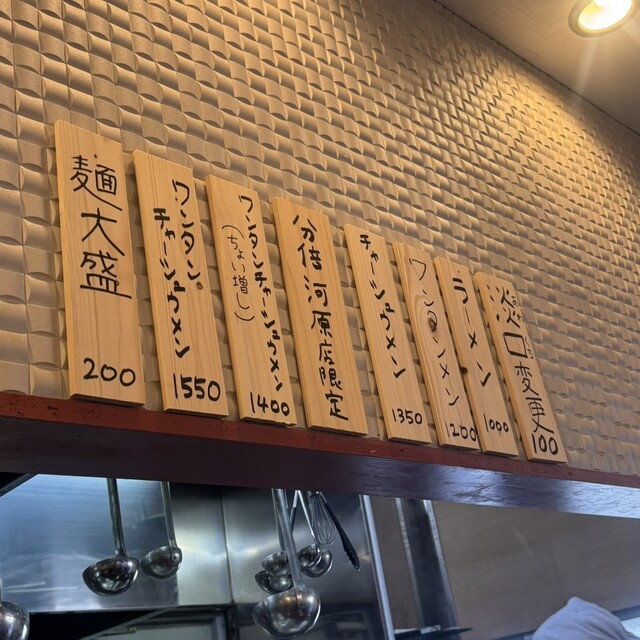 淡口変更
100
ラーメン
1000
ワンタンメン
1200
チャーシュウメン
1350
分倍河原店限定
ワンタンチャーシュウメン
(ちょい増し)
1400
ワンタン
チャーシュウメン
1550
麺大盛
200